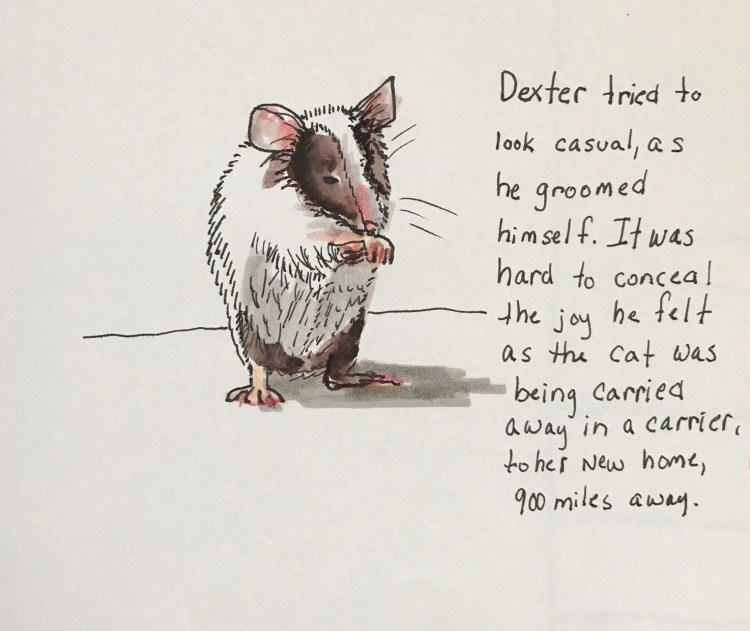 Dexter tried to
look casual, as
he groomed
himself. It was
hard to conceal
the joy he felt
as the cat was
being carried
away in a carrier,
to her New home,
900 miles away.